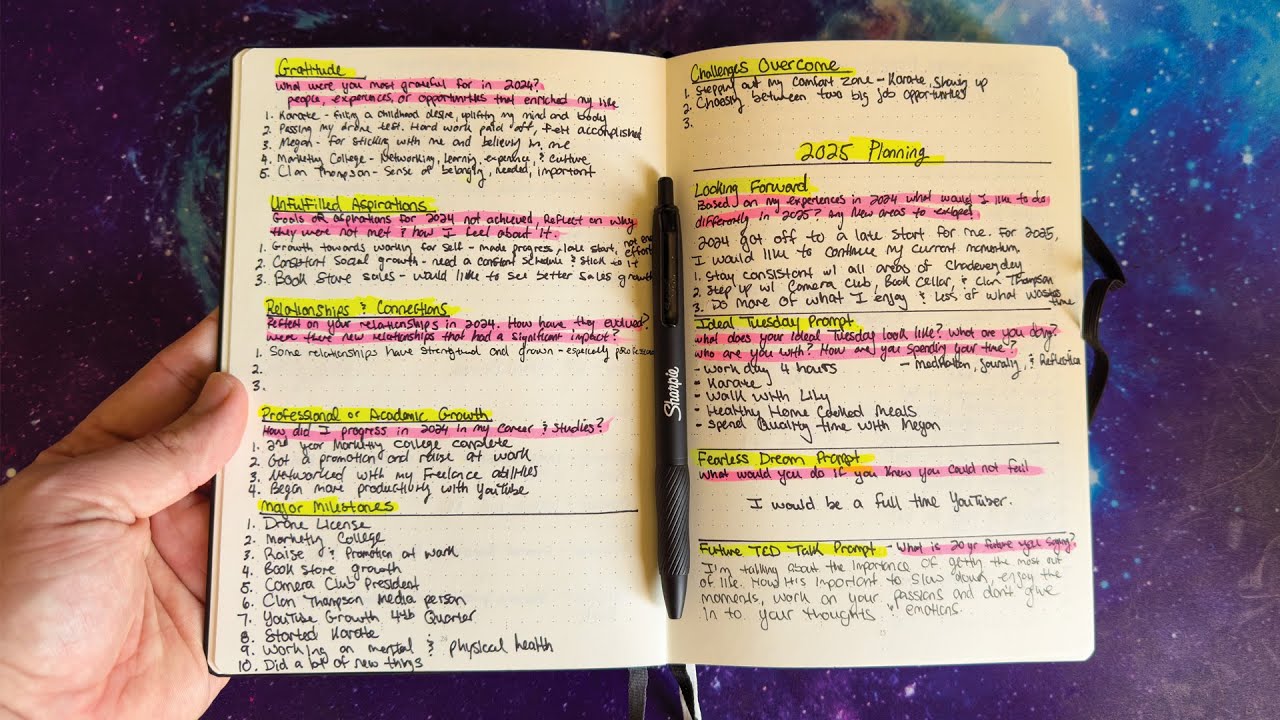 Gratitude
What were you most grateful for in 2024?
people, experiences, or opportunities that enriched my life
1. Karate - filling a childhood desire, uplifting my mind and body
2. Passing my drone test. Hard work paid off, felt accomplished
3. Megan - for sticking with me and believing in me
4. Marketing College - Networking, learning, experience, & culture
5. Clan Thompson - Sense of belonging, needed, important
Unfulfilled Aspirations
Goals or aspirations for 2024 not achieved, Reflect on why
they were not met & how I feel about it.
1. Growth towards working for self - made progress, late start, not enough effort
2. Consistent Social growth - need a constant schedule & stick to it
3. Book Store sales - would like to see better sales growth
Relationships & Connections
Reflect on your relationships in 2024. How have they evolved?
Were there new relationships that had a significant impact?
1. Some relationships have strengthened and grown - especially
2.
3.
Professional or Academic Growth
How did I progress in 2024 in my career & studies?
1. 2nd year Marketing College complete
2. Got a promotion and raise at work
3. Networked with my Freelance abilities
4. Began more productivity with YouTube
Major Milestones
1. Drone License
2. Marketing College
3. Raise & Promotion at work
4. Book store growth
5. Camera Club President
6. Clan Thompson Media person
7. YouTube Growth 4th Quarter
8. Started Karate
9. Working on mental & physical health
10. Did a lot of new things
Sharpie
Challenges Overcome
1. Stepping out my comfort zone - Karate, Showing up
2. Choosing between two big job opportunities
3.
2025 Planning
Looking Forward
Based on my experiences in 2024 what would I like to do
differently in 2025? Any New areas to explore?
2024 got off to a late start for me. For 2025,
I would like to continue my current momentum.
1. Stay consistant w/ all areas of Chadeveryday
2. Step up w/ Camera Club, Book Cellar, & Clan Thompson
3. Do more of what I enjoy & less of what wastes time
Ideal Tuesday Prompt
What does your ideal Tuesday look like? What are you doing?
Who are you with? How are you spending your time?
- work day 4 hours - meditation, journaling, & Reflection
- Karate
- Walk with Lily
- Healthy Home Cooked Meals
- Spend Quality time with Megan
Fearless Dream Prompt
What would you do if you knew you could not fail
I would be a full time YouTuber.
Future TED Talk Prompt - What is 20yr future you saying?
I'm talking about the importance of getting the most out
of life. How it is important to slow down, enjoy the
moments, work on your passions and don't give
in to your thoughts & emotions.